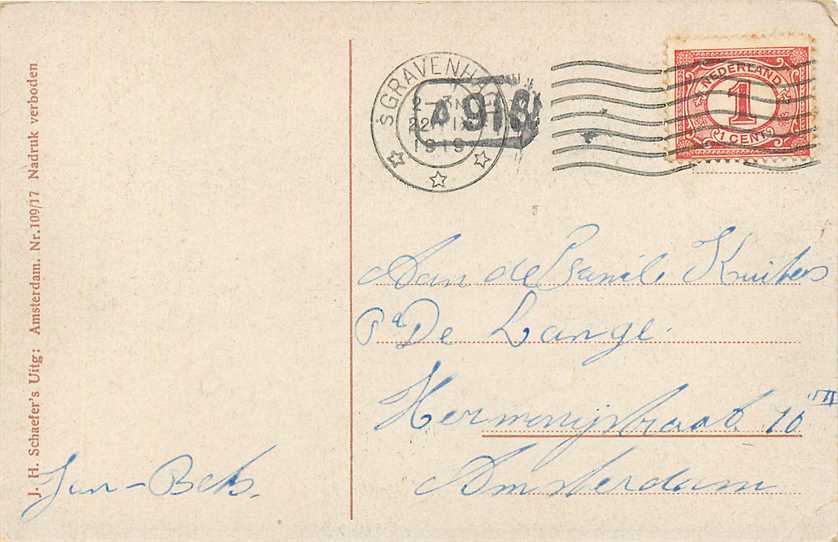 J. H. Schaefer's Uitg: Amsterdam. Nr. 109/17 Nadruk verboden
'SGRAVENHAGE
22
1919
A 918
NEDERLAND
1
1 CENT
Aan de Familie Kuiters
Pa De Lange.
Hermonystraat 10 III
Amsterdam
Jan-Bets.